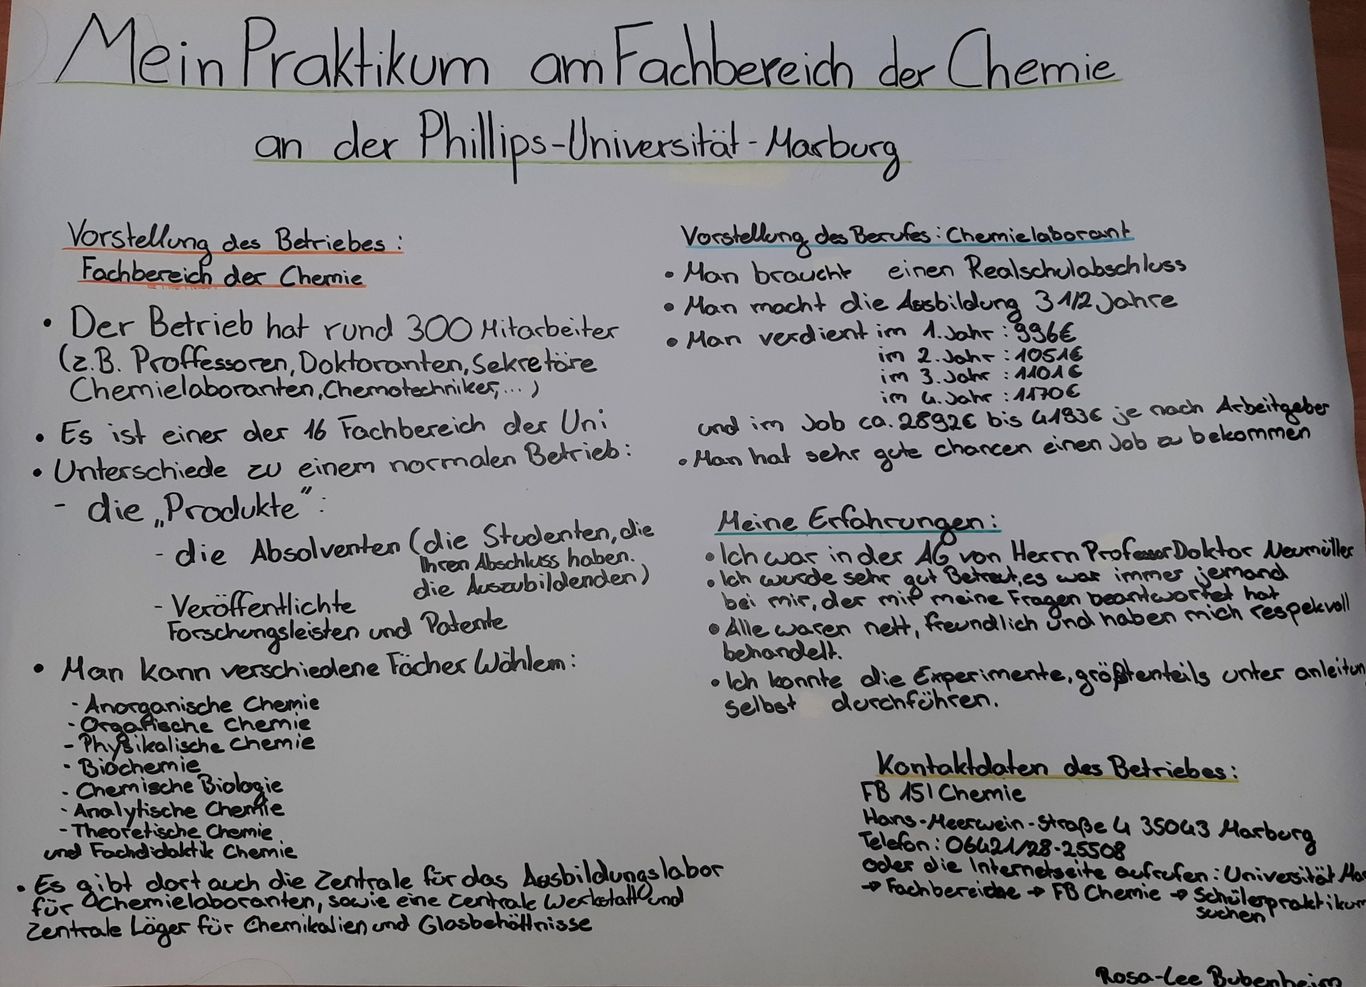 Mein Praktikum am Fachbereich der Chemie
an der Phillips-Universität-Marburg
Vorstellung des Betriebes:
Fachbereich der Chemie
• Der Betrieb hat rund 300 Mitarbeiter
(z.B. Proffessoren, Doktoranten, Sekretäre
Chemielaboranten, Chemotechniker, ...)
• Es ist einer der 16 Fachbereich der Uni
• Unterschiede zu einem normalen Betrieb:
- die „Produkte":
- die Absolventen (die Studenten, die
Ihren Abschluss haben.
die Auszubildenden)
- Veröffentlichte
Forschungsleisten und Patente
• Man kann verschiedene Fächer Wählem:
- Anorganische Chemie
- Organische Chemie
- Physikalische Chemie
- Biochemie
- Chemische Biologie
- Analytische Chemie
- Theoretische Chemie
und Fachdidaktik Chemie
• Es gibt dort auch die Zentrale für das Ausbildungslabor
für Chemielaboranten, sowie eine Zentrale Werkstatt und
Zentrale Läger für Chemikalien und Glasbehältnisse
Vorstellung des Berufes: Chemielaborant
• Man braucht einen Realschulabschluss
• Man macht die Ausbildung 3 1/2 Jahre
• Man verdient im 1. Jahr: 996€
im 2. Jahr: 1051€
im 3. Jahr: 1101€
im 4. Jahr: 1170€
und im Job ca. 2892€ bis 4183€ je nach Arbeitgeber
• Man hat sehr gute chancen einen Job zu bekommen
Meine Erfahrungen:
• Ich war in der AG von Herrn Professor Doktor Neumüller
• Ich wurde sehr gut Betreut, es war immer jemand
bei mir, der mir meine Fragen beantwortet hat
• Alle waren nett, freundlich und haben mich respekvoll
behandelt.
• Ich konnte die Experimente, größtenteils unter anleitun
selbst durchführen.
Kontaktdaten des Betriebes:
FB 15| Chemie
Hans-Meerwein-Straße 4 35043 Marburg
Telefon: 06421/28-25508
oder die Internetseite aufrufen: Universität Mar
→ Fachbereiche → FB Chemie → Schülerpraktikum
suchen
Rosa-Lee Bubenheim